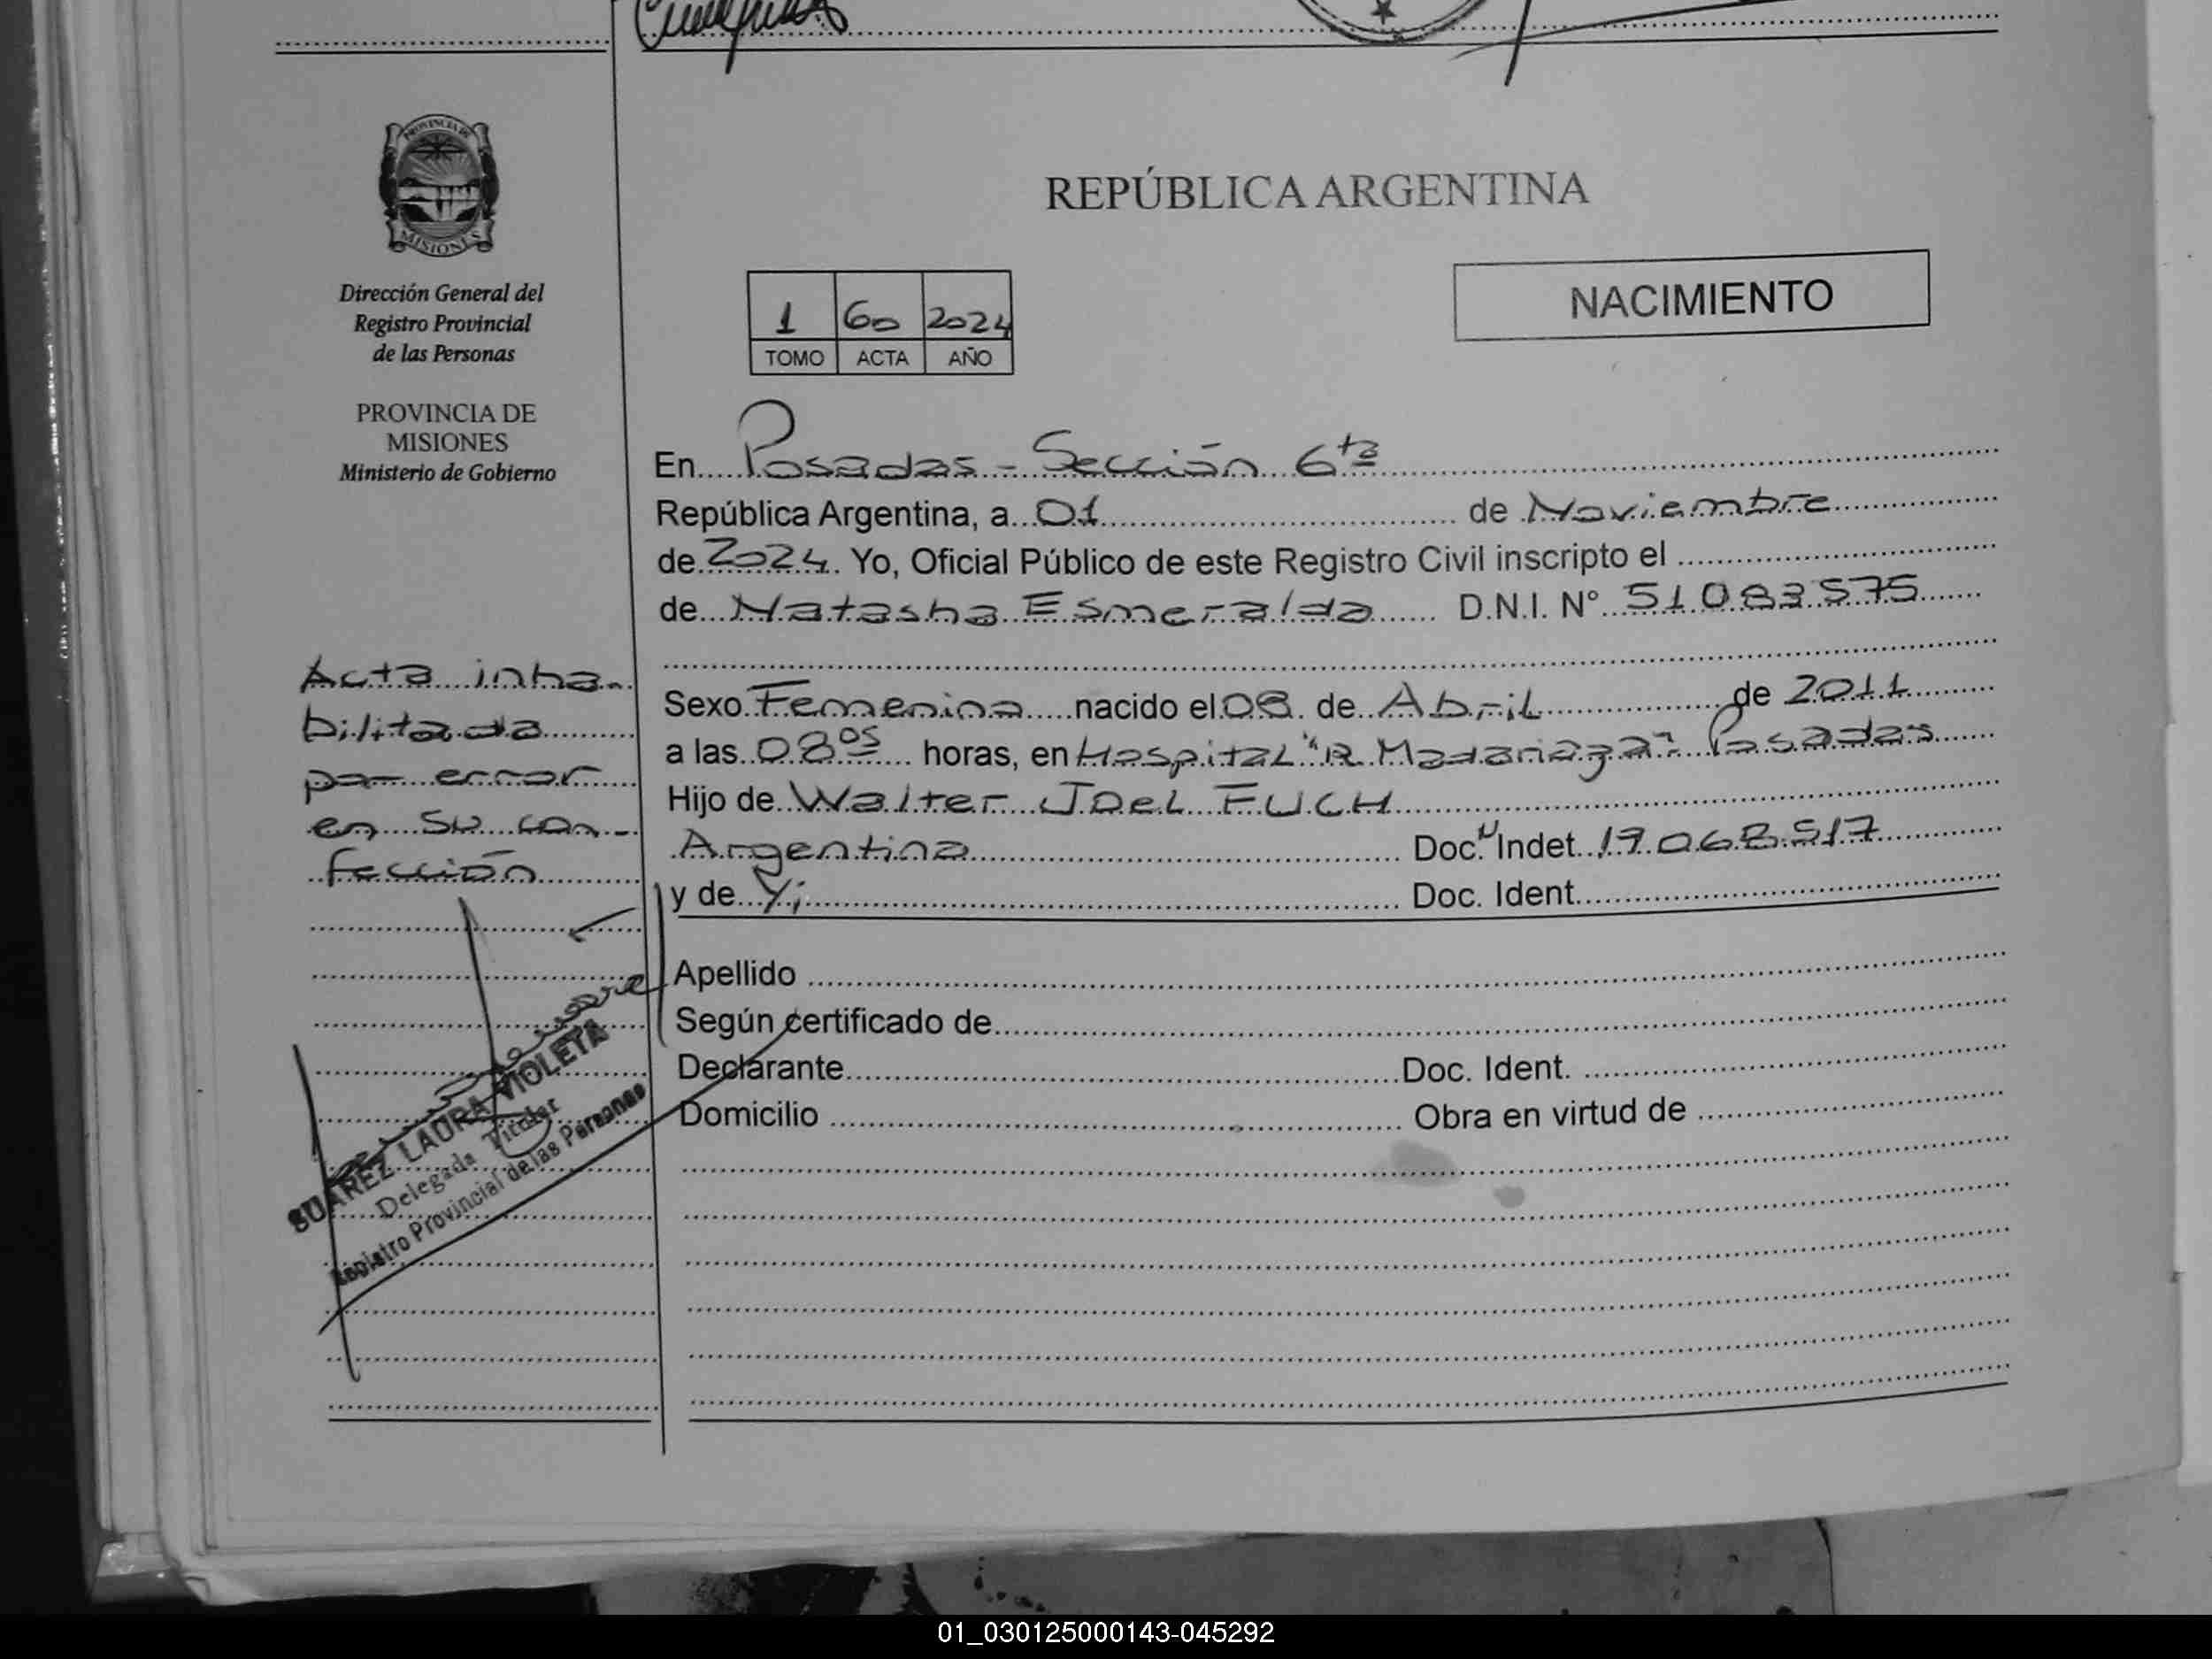 PROVINCIA DE
MISIONES
Dirección General del
Registro Provincial
de las Personas
PROVINCIA DE
MISIONES
Ministerio de Gobierno
Acta inha-
bilitada
por error
en su con-
fección
SUAREZ LAURA VIOLETA
Delegada Titular
Registro Provincial de las Personas
REPÚBLICA ARGENTINA
1 60 2024
TOMO ACTA AÑO
NACIMIENTO
En Posadas - Sección 6ta
República Argentina, a 01 de Noviembre
de 2024. Yo, Oficial Público de este Registro Civil inscripto el
de Natasha Esmeralda D.N.I. N° 51083575
Sexo Femenina nacido el 08 de Abril de 2011
a las 08os horas, en Hospital "R. Madariaga" Posadas
Hijo de Walter Joel FUCH
Argentina Doc. Indet. 19.068.517
y de Y; Doc. Ident.
Apellido
Según certificado de
Declarante Doc. Ident.
Domicilio Obra en virtud de
01_030125000143-045292